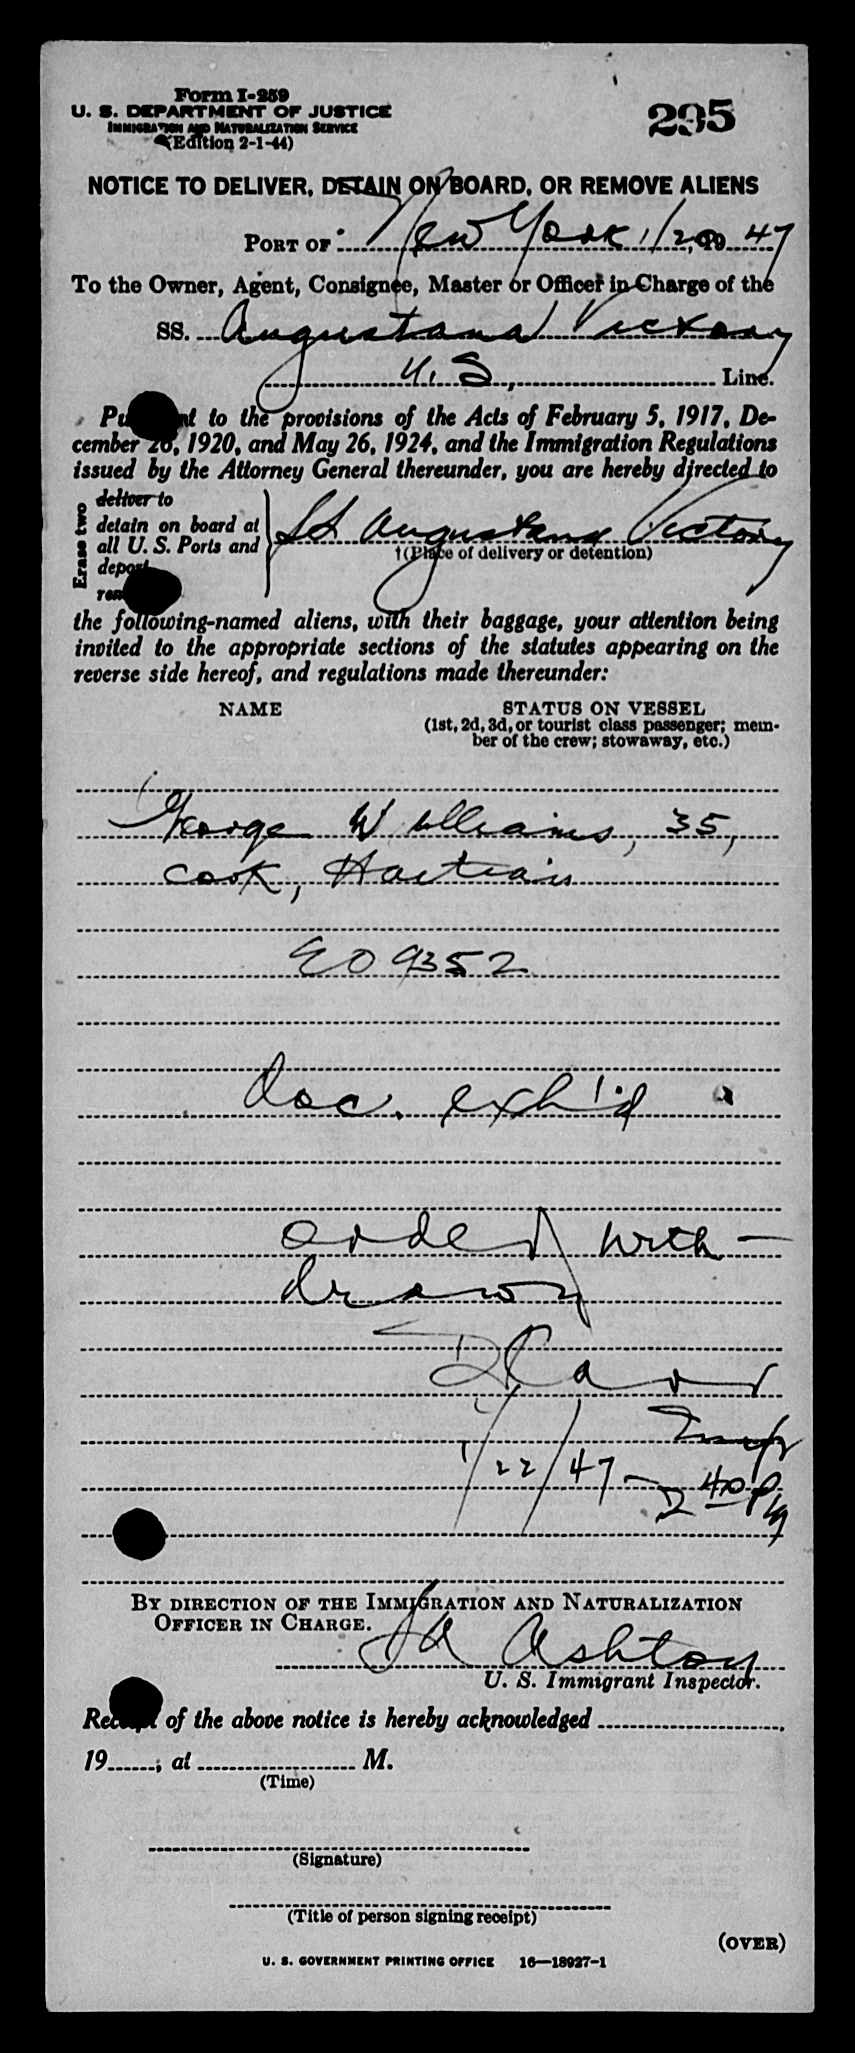 Form I-259
U. S. DEPARTMENT OF JUSTICE
IMMIGRATION AND NATURALIZATION SERVICE
(Edition 2-1-44)
295
NOTICE TO DELIVER, DETAIN ON BOARD, OR REMOVE ALIENS
PORT OF New York 1/20, 1947
To the Owner, Agent, Consignee, Master or Officer in Charge of the
SS. Augustana Victory
U.S., Line.
Pu nt to the provisions of the Acts of February 5, 1917, De-
cember 26, 1920, and May 26, 1924, and the Immigration Regulations
issued by the Attorney General thereunder, you are hereby directed to
Erase two
deliver to
detain on board at
all U. S. Ports and
deport
SS Augustana Victory
†(Place of delivery or detention)
the following-named aliens, with their baggage, your attention being
invited to the appropriate sections of the statutes appearing on the
reverse side hereof, and regulations made thereunder:
NAME STATUS ON VESSEL
(1st, 2d, 3d, or tourist class passenger; mem-
ber of the crew; stowaway, etc.)
George Williams, 35,
cook, Haitian
EO 9352
doc. exh'd
order with-
drawn
Insp
1/22/47 - 2 40 PM
BY DIRECTION OF THE IMMIGRATION AND NATURALIZATION
OFFICER IN CHARGE.
Ashton
U. S. Immigrant Inspector.
Receipt of the above notice is hereby acknowledged
19......; at .................... M.
(Time)
(Signature)
(Title of person signing receipt)
(OVER)
U. S. GOVERNMENT PRINTING OFFICE 16—18927-1